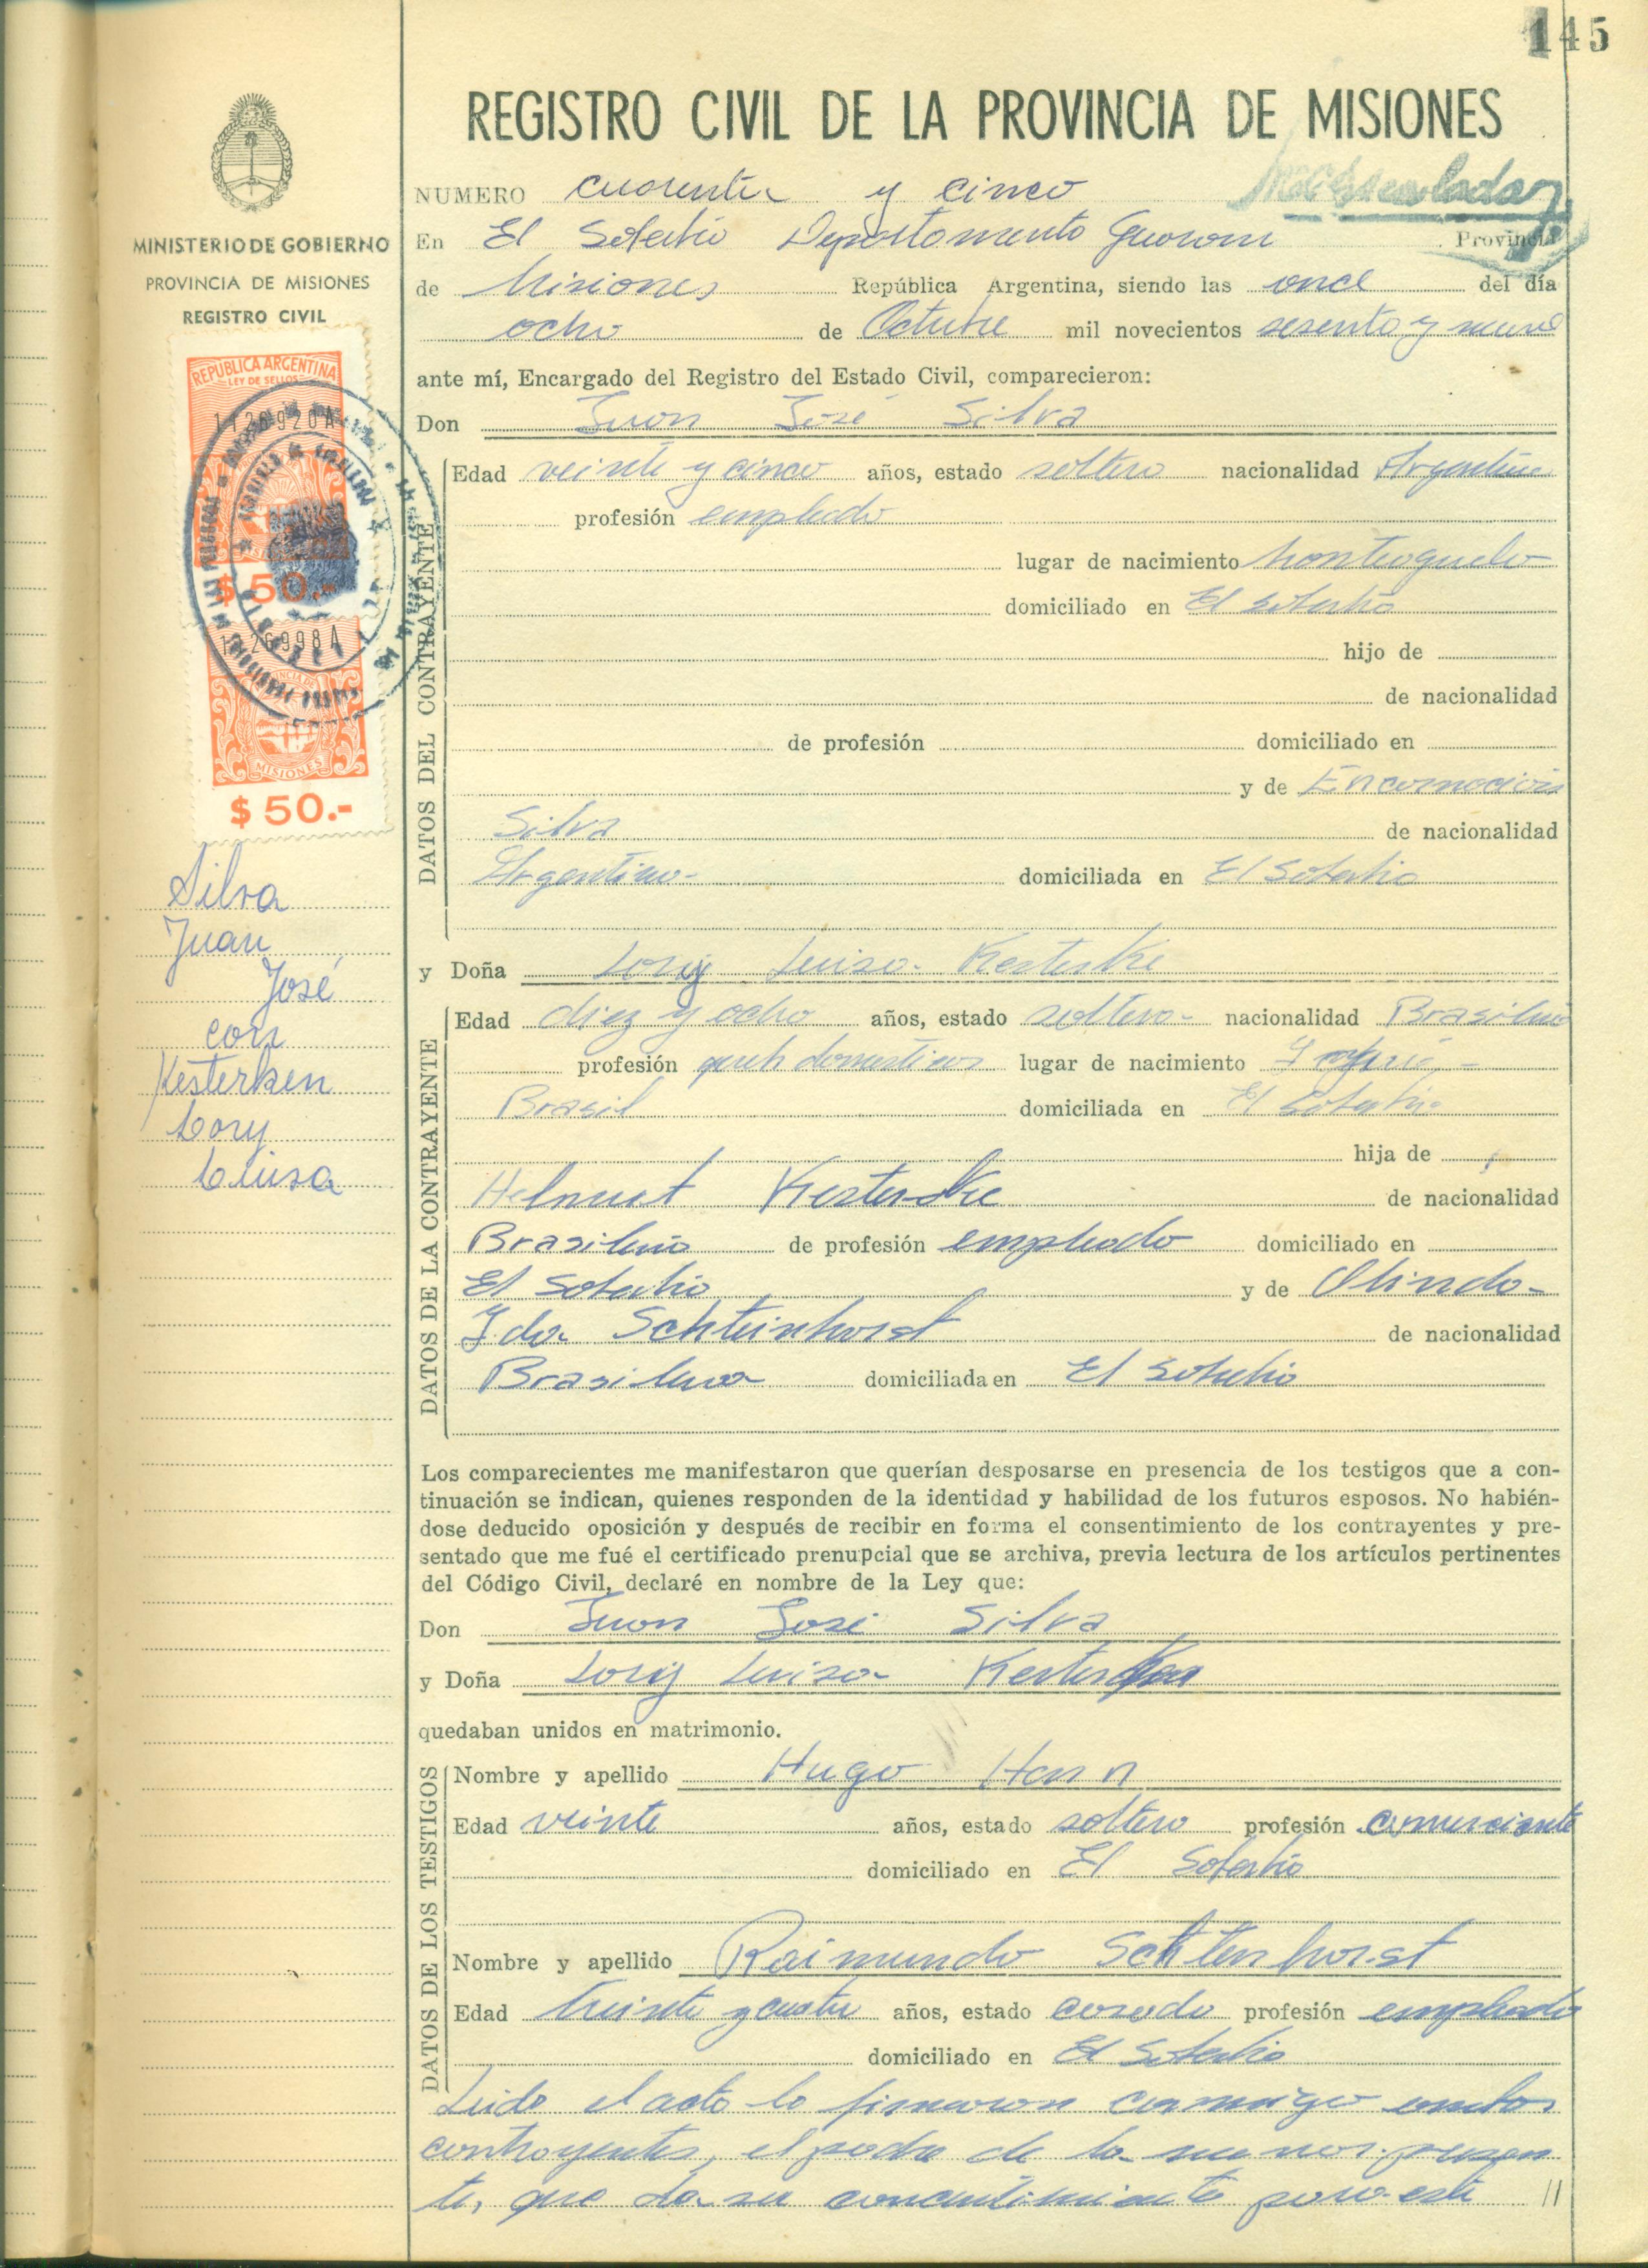 145
REGISTRO CIVIL DE LA PROVINCIA DE MISIONES
MINISTERIO DE GOBIERNO
PROVINCIA DE MISIONES
REGISTRO CIVIL
REPUBLICA ARGENTINA
LEY DE SELLOS
$ 50.-
MISIONES
$ 50.-
Silva
Juan
José
con
Kesterken
Lory
Luisa
NUMERO cuarenta y cinco
En El Soberbio Departamento Guarani Provincia
de Misiones República Argentina, siendo las once del día
ocho de Octubre mil novecientos sesenta y nueve
ante mí, Encargado del Registro del Estado Civil, comparecieron:
Don Juan José Silva
DATOS DEL CONTRAYENTE
Edad veinte y cinco años, estado soltero nacionalidad Argentino
profesión empleado
lugar de nacimiento Monteagudo
domiciliado en El Soberbio
hijo de
de nacionalidad
de profesión domiciliado en
y de Encarnación
Silva de nacionalidad
Argentina- domiciliada en El Soberbio
y Doña Lory Luisa Kesterke
DATOS DE LA CONTRAYENTE
Edad diez y ocho años, estado soltera- nacionalidad Brasileña
profesión queh domesticos lugar de nacimiento
Brasil domiciliada en El Soberbio
hija de
Helmut Kesterke de nacionalidad
Brasileño de profesión empleado domiciliado en
El Soberbio y de Olinda-
Ida Schteinhorst de nacionalidad
Brasilera domiciliada en El Soberbio
Los comparecientes me manifestaron que querían desposarse en presencia de los testigos que a con-
tinuación se indican, quienes responden de la identidad y habilidad de los futuros esposos. No habién-
dose deducido oposición y después de recibir en forma el consentimiento de los contrayentes y pre-
sentado que me fué el certificado prenupcial que se archiva, previa lectura de los artículos pertinentes
del Código Civil, declaré en nombre de la Ley que:
Don Juan José Silva
y Doña Lory Luisa Kesterken
quedaban unidos en matrimonio.
DATOS DE LOS TESTIGOS
Nombre y apellido Hugo Hann
Edad veinte años, estado soltero profesión comerciante
domiciliado en El Soberbio
Nombre y apellido Raimundo Schtenhorst
Edad treinta y cuatro años, estado casado profesión empleado
domiciliado en El Soberbio
Leida el acta la firmaron conmigo ambos
contrayentes, el padre de la menor presen
te, que da su concentimiento para este //